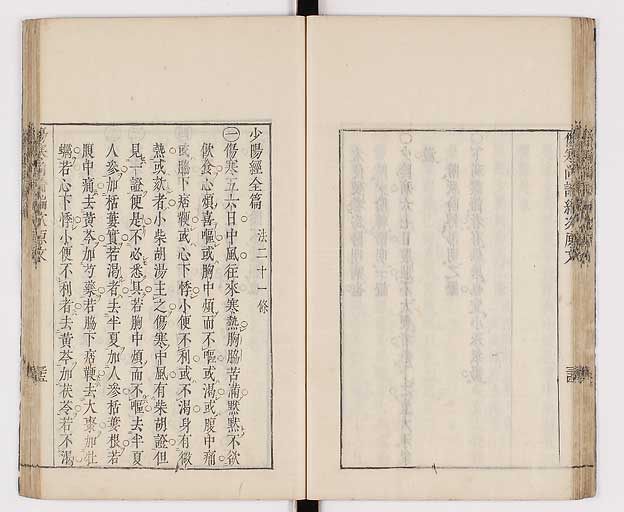 少陽經全篇　法二十一條
㊀傷寒五六日中風往來寒熱胸脇苦滿默默不欲
飲食心煩喜嘔或胸中煩而不嘔或渴或腹中痛
或脇下痞鞕或心下悸小便不利或不渴身有微
熱或欬者小柴胡湯主之傷寒中風有柴胡證但
見一證便是不必悉具若胸中煩而不嘔去半夏
人參加栝蔞實若渴者去半夏加人參栝蔞根若
腹中痛去黃芩加芍藥若脇下痞鞕去大棗加牡
蠣若心下悸小便不利者去黃芩加茯苓若不渴